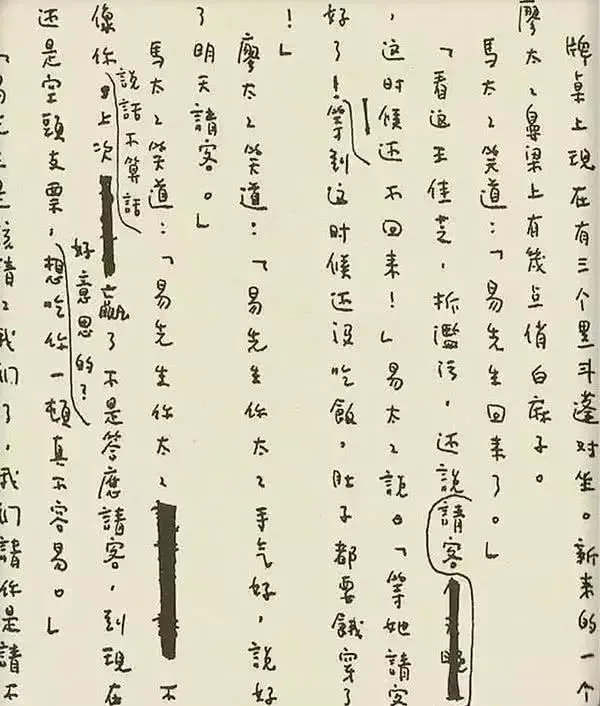 牌桌上現在有三个黑斗蓬对坐。新来的一个
廖太〻鼻梁上有幾点俏白麻子。
馬太〻笑道：「易先生回来了。」
「看这王佳芝，拆濫污，还說請客
，这时候还不回来！」易太〻說。「等她請客
好了！等到这时候还没吃飯，肚子都要餓穿了
！」
廖太〻笑道：「易先生你太〻手气好，說好
了明天請客。」
馬太〻笑道：「易先生你太〻不
說話不算話
像你。上次贏了不是答應請客，到現在
好意思的？
还是空頭支票，想吃你一頓真不容易。」
「易先生是該請〻我们了，我们請你是請不